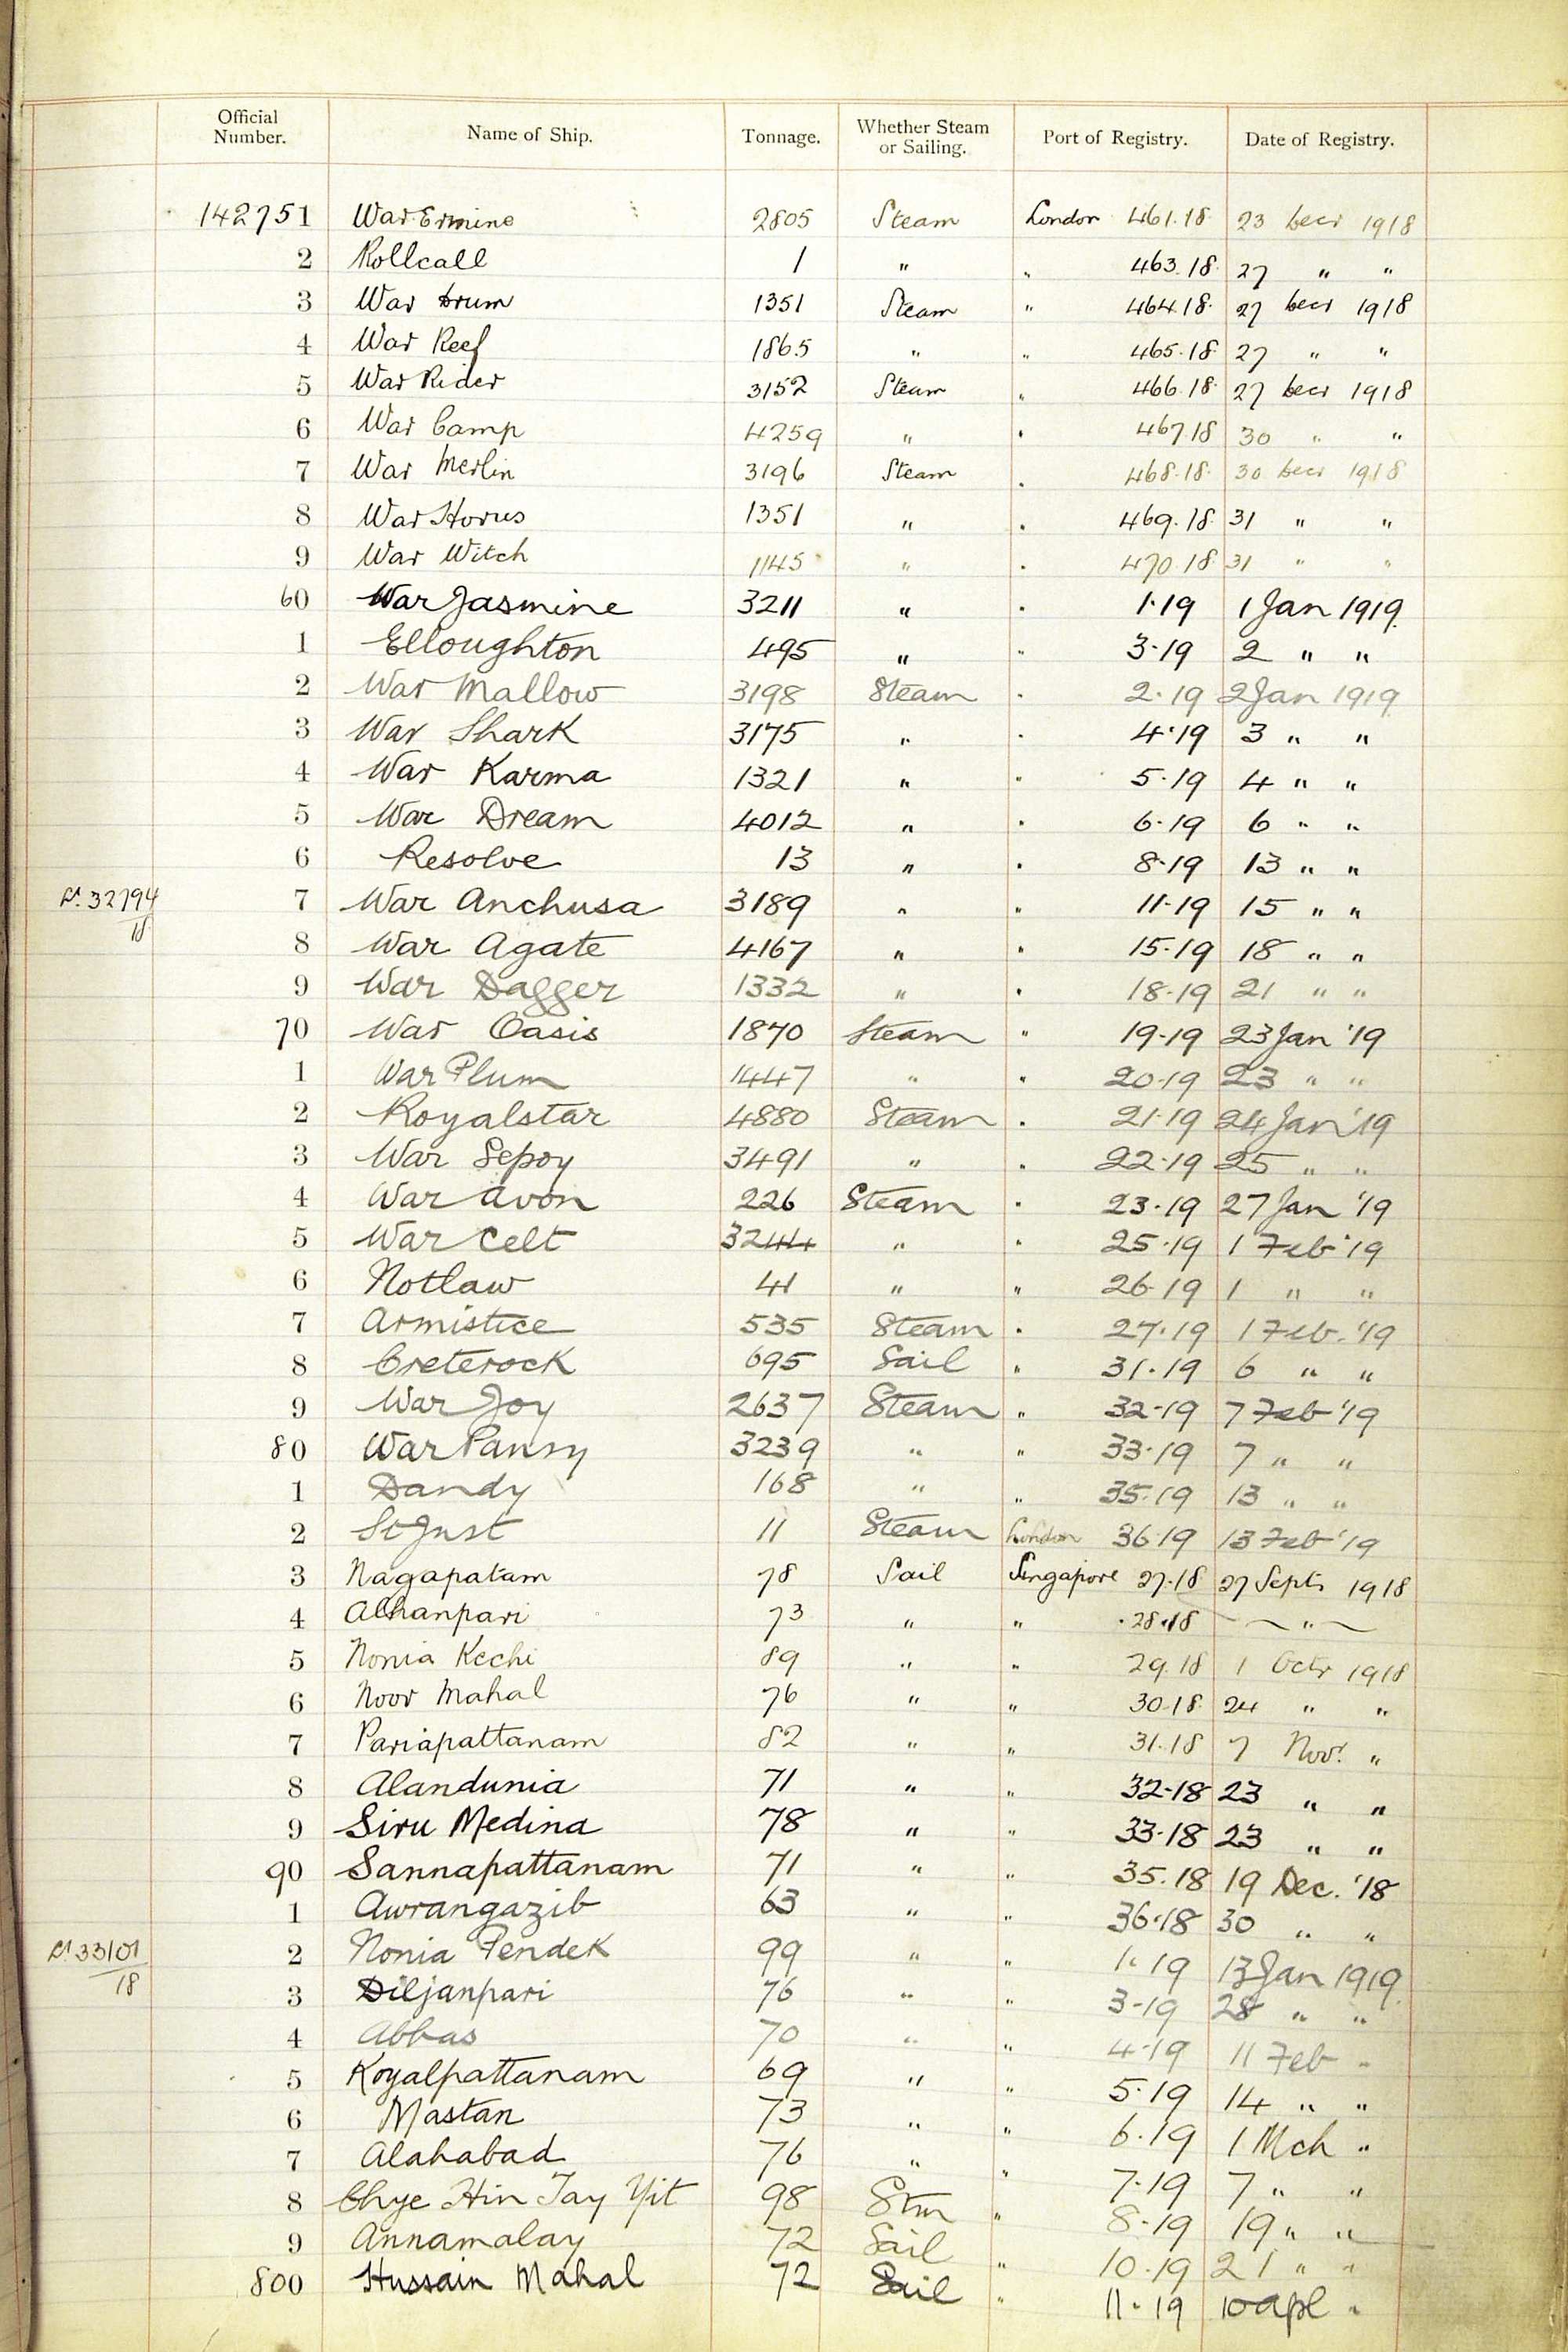 Official Number. Name of Ship. Tonnage. Whether Steam or Sailing. Port of Registry. Date of Registry.
142751 War Ermine 2805 Steam London 461.18. 23 Decr 1918
2 Rollcall 1 " " 463.18. 27 " "
3 War Drum 1351 Steam " 464.18. 27 Decr 1918
4 War Reef 1865 " " 465.18. 27 " "
5 War Rider 3152 Steam " 466.18. 27 Decr 1918
6 War Camp 4259 " " 467.18 30 " "
7 War Merlin 3196 Steam " 468.18. 30 Decr 1918
8 War Horus 1351 " " 469.18. 31 " "
9 War Witch 1145 " " 470.18. 31 " "
60 War Jasmine 3211 " " 1.19 1 Jan 1919.
1 Elloughton 495 " " 3.19 2 " "
2 War Mallow 3198 Steam " 2.19 2 Jan 1919
3 War Shark 3175 " " 4.19 3 " "
4 War Karma 1321 " " 5.19 4 " "
5 War Dream 4012 " " 6.19 6 " "
6 Resolve 13 " " 8.19 13 " "
32794/18 7 War Anchusa 3189 " " 11.19 15 " "
8 War Agate 4167 " " 15.19 18 " "
9 War Dagger 1332 " " 18.19 21 " "
70 War Oasis 1870 Steam " 19.19 23 Jan '19
1 War Plum 1447 " " 20.19 23 " "
2 Royalstar 4880 Steam " 21.19 24 Jan '19
3 War Sepoy 3491 " " 22.19 25 " "
4 War Avon 226 Steam " 23.19 27 Jan '19
5 War Celt 3244 " " 25.19 1 Feb '19
6 Notlaw 41 " " 26.19 1 " "
7 Armistice 535 Steam " 27.19 1 Feb. '19
8 Creterock 695 Sail " 31.19 6 " "
9 War Joy 2637 Steam " 32.19 7 Feb '19
80 War Pansy 3239 " " 33.19 7 " "
1 Dandy 168 " " 35.19 13 " "
2 St Just 11 Steam London 36.19 13 Feb '19
3 Nagapatam 78 Sail Singapore 27.18 27 Septr 1918
4 73 " " 28.18 "
5 Nonia Kechi 89 " " 29.18 1 Octr 1918
6 Noor Mahal 76 " " 30.18. 24 " "
7 Pariapattanam 82 " " 31.18 7 Novr "
8 Alandunia 71 " " 32.18 23 " "
9 Siru Medina 78 " " 33.18 23 " "
90 Sannapattanam 71 " " 35.18 19 Dec. '18
1 Awrangazib 63 " " 36.18 30 " "
33101/18 2 Nonia Pendek 99 " " 1.19 13 Jan 1919
3 Diljanpari 76 " " 3.19 28 " "
4 Abbas 70 " " 4.19 11 Feb "
5 Koyalpattanam 69 " " 5.19 14 " "
6 Mastan 73 " " 6.19 1 Mch "
7 Alahabad 76 " " 7.19 7 " "
8 Chye Hin Tay Yit 98 Stm " 8.19 19 " "
9 Annamalay 72 Sail " 10.19 21 " "
800 Hussain Mahal 72 Sail " 11.19 10 Apl "